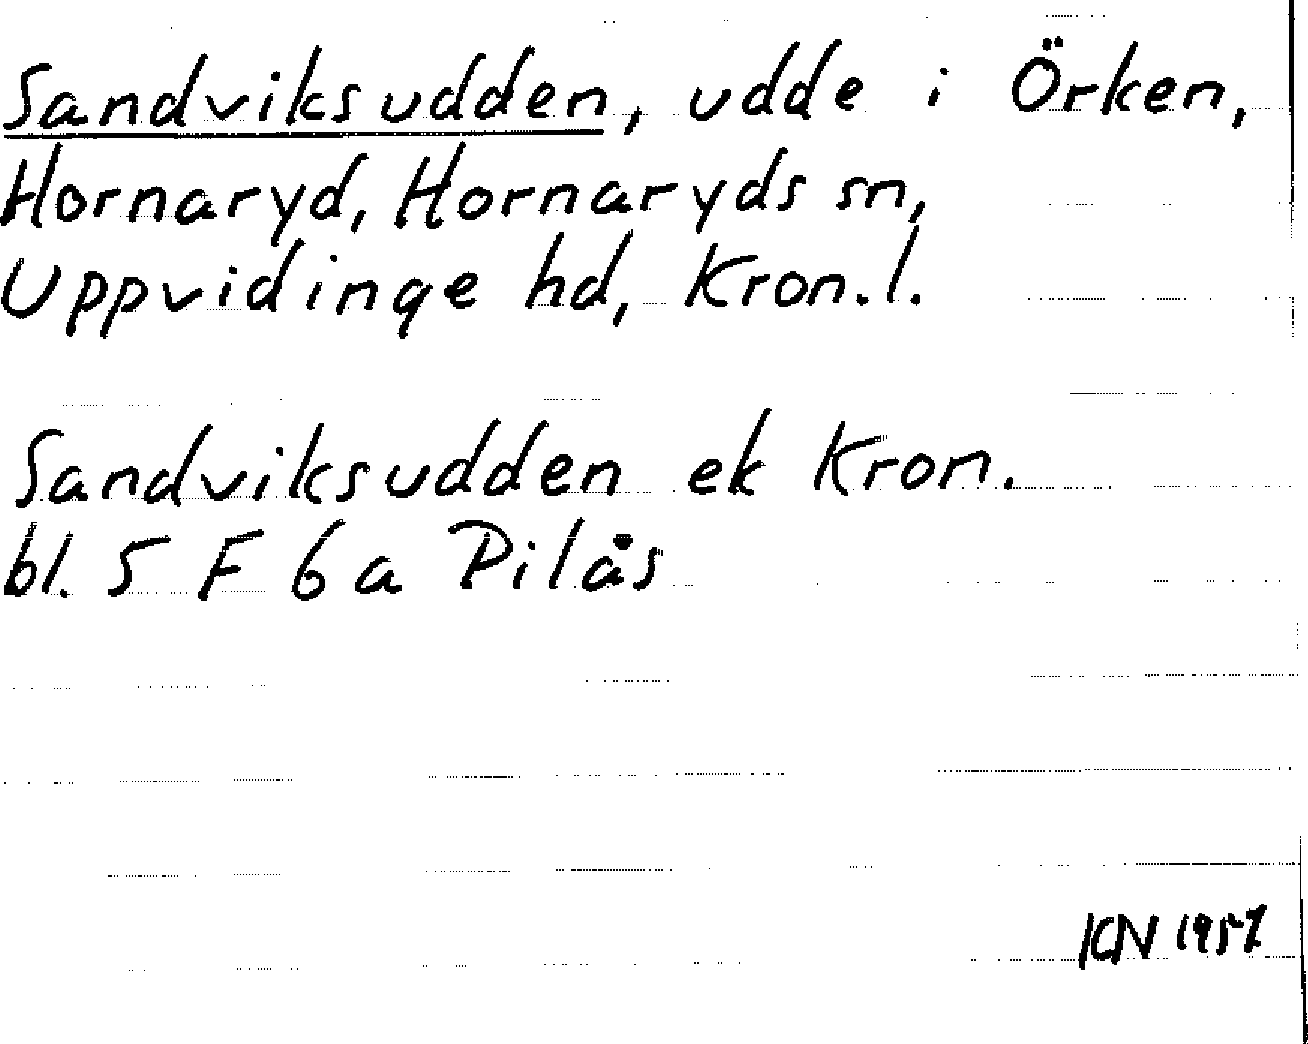 Sandviksudden, udde i Örken,
Hornaryd, Hornaryds sn,
Uppvidinge hd, Kron.l.
Sandviksudden ek Kron.
bl. 5 F 6a Pilås
KN 1957